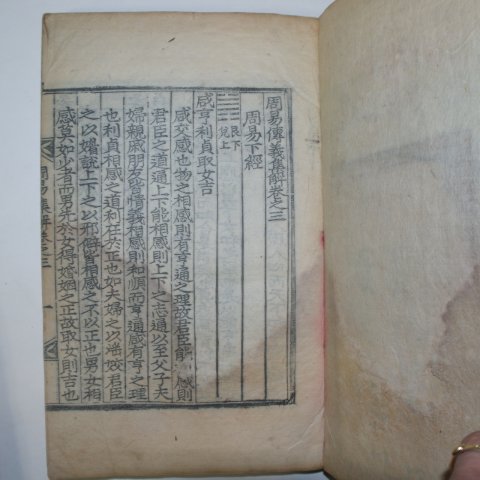 周易傳義集解卷之三
周易下經
艮下
兌上
咸亨利貞取女吉
咸交感也物之相感則有亨通之理故君臣能 感則
君臣之道通上下能相感則上下之志通以至父子夫
婦親戚朋友皆情義相感則和順而亨通感有亨之理
也利貞相感之道利在於正也如夫婦之以 君臣
之以媚說上下之以邪僻皆相感之不以正也男女相
感 如少者而男先於女得婚姻之正故取女則吉也
周易集解卷之三
一